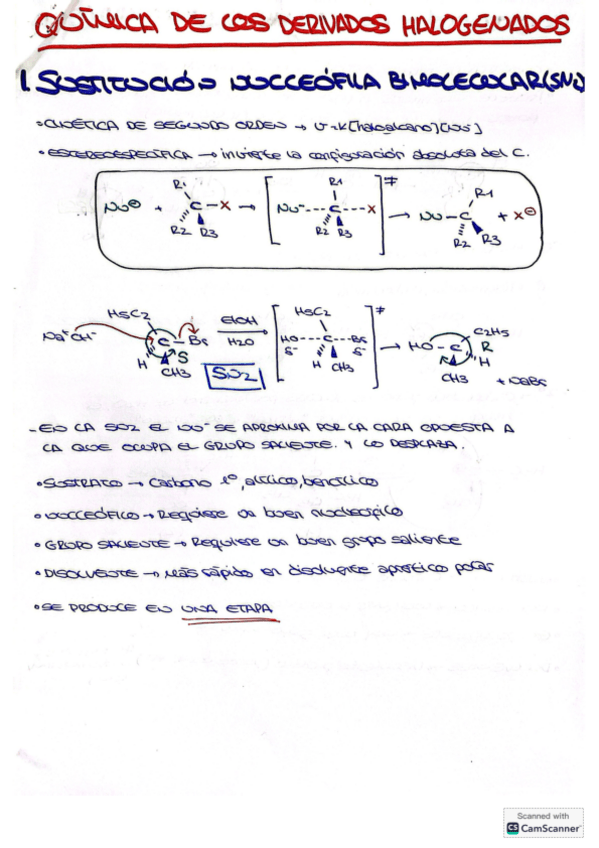 QUÍMICA DE LOS DERIVADOS HALOGENADOS
1. SUSTITUCIÓN NUCLEÓFILA BIMOLECULAR (SN2)
• CINÉTICA DE SEGUNDO ORDEN → v = k[haloalcano][Nu⁻]
• ESTEREOESPECÍFICA → invierte la configuración absoluta del C.
R1 R1 R1
Nu⊖ + C – X → [ Nu⁻---C---X ]≠ → Nu – C + X⊖
R2 R3 R2 R3 R2 R3
H5C2 H5C2 C2H5
Na⁺OH⁻ C – Br EtOH → [ HO---C---Br ]≠ → HO – C R
H S H2O δ⁻ δ⁻ R H
CH3 SN2 H CH3 CH3 + NaBr
- EN LA SN2 EL NU⁻ SE APROXIMA POR LA CARA OPUESTA A
LA QUE OCUPA EL GRUPO SALIENTE. Y LO DESPLAZA.
• SUSTRATO → Carbono 1º, alílico, bencílico
• NUCLEÓFILO → Requiere un buen nucleófilo
• GRUPO SALIENTE → Requiere un buen grupo saliente
• DISOLVENTE → Más rápido en disolvente aprótico polar
• SE PRODUCE EN UNA ETAPA
Scanned with
CS CamScanner